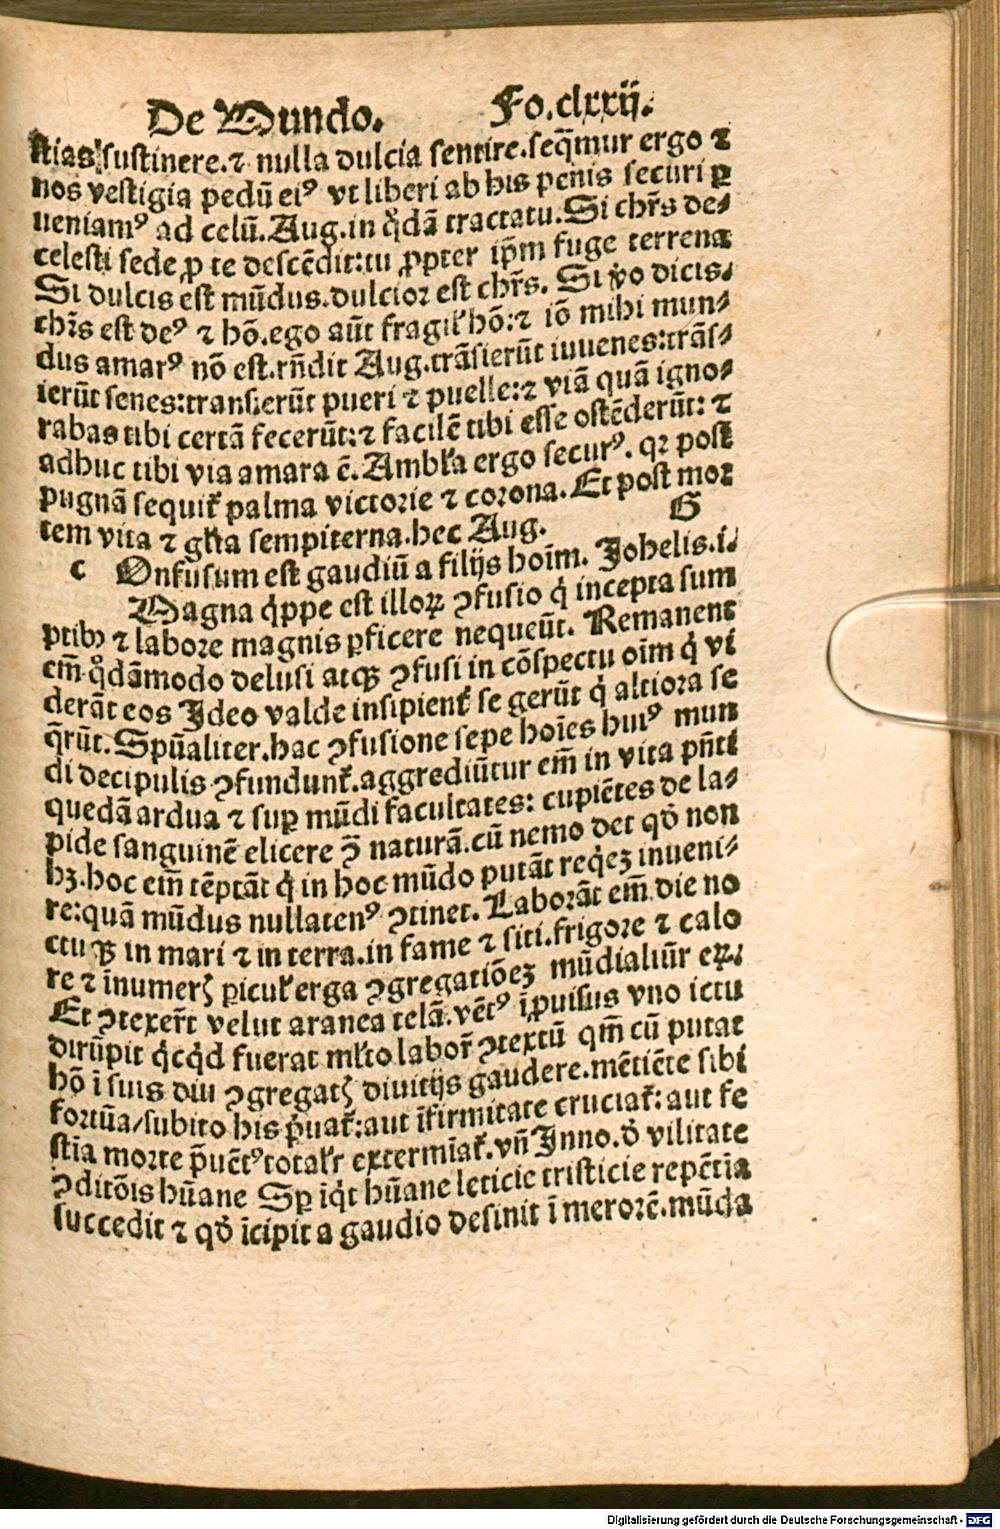 De Mundo. Fo.clxxij.
stias sustinere.⁊ nulla dulcia sentire.seq̄mur ergo ⁊
nos vestigia pedū eiꝰ vt liberi ab his penis securi ꝑ
ueniamꝰ ad celū.Aug.in q̊dā tractatu.Si chr̄s de⸗
celesti sede ꝓ te descēdit:tu ꝓpter ip̄m fuge terrena
Si dulcis est mūdus.dulcior est chr̄s. Si ꝟo dicis.
chr̄s est deꝰ ⁊ hō.ego aūt fragil̓ hō:⁊ iō mihi mun⸗
dus amarꝰ nō est.rn̄dit Aug.trāsierūt iuuenes:trās⸗
ierūt senes:transierūt pueri ⁊ puelle:⁊ viā quā igno⸗
rabas tibi certā fecerūt:⁊ facilē tibi esse ostēderūt: ⁊
adhuc tibi via amara ē.Ambl̓a ergo securꝰ. qꝛ post
pugnā sequit̓ palma victorie ⁊ corona.Et post mor
tem vita ⁊ gl̓ia sempiterna.hec Aug. G
c Onfusum est gaudiū a filijs hoīm. Johelis.i.
Magna q̇ppe est illoꝝ ꝯfusio q̇ incepta sum
ptibꝫ ⁊ labore magnis ꝑficere nequeūt. Remanent
em̄ q̊dāmodo delusi atqꝫ ꝯfusi in cōspectu oīm q̇ vi
derāt eos Ideo valde insipient̓ se gerūt q̇ altiora se
q̄rūt.Spūaliter.hac ꝯfusione sepe hoīes huiꝰ mun
di decipulis ꝯfundunt̓.aggrediūtur em̄ in vita pn̄ti
quedā ardua ⁊ suꝑ mūdi facultates: cupiētes de la⸗
pide sanguinē elicere ꝯ̄ naturā.cū nemo det qd̓ non
hꝫ.hoc em̄ tēptāt q̇ in hoc mūdo putāt req̇eꝫ inueni⸗
re:quā mūdus nullatenꝰ ꝯtinet. Laborāt em̄ die no
ctuqꝫ in mari ⁊ in terra.in fame ⁊ siti.frigore ⁊ calo
re ⁊ īnumerꝭ ꝑicul̓ erga ꝯgregatiōeꝫ mūdialiūr eꝝ.
Et ꝯtexer̄t velut aranea telā.vētꝰ īprouisus vno ictu
dirūpit q̇cq̇d fuerat ml̓to labor̄ ꝯtextū qm̄ cū putat
hō ī suis diu ꝯgregatꝭ diuitijs gaudere.mētiēte sibi
fortūa/subito his p̄uat̓:aut īfirmitate cruciat̓: aut fe
stīa morte p̄uētꝰ total̓r extermīat̓.vn̄ Inno.d̓ vilitate
ꝯditōis hūane Sꝑ iq̇t hūane leticie tristicie repētīa
succedit ⁊ qd̓ īcipit a gaudio desinit ī merorē.mūda
Digitalisierung gefördert durch die Deutsche Forschungsgemeinschaft - DFG